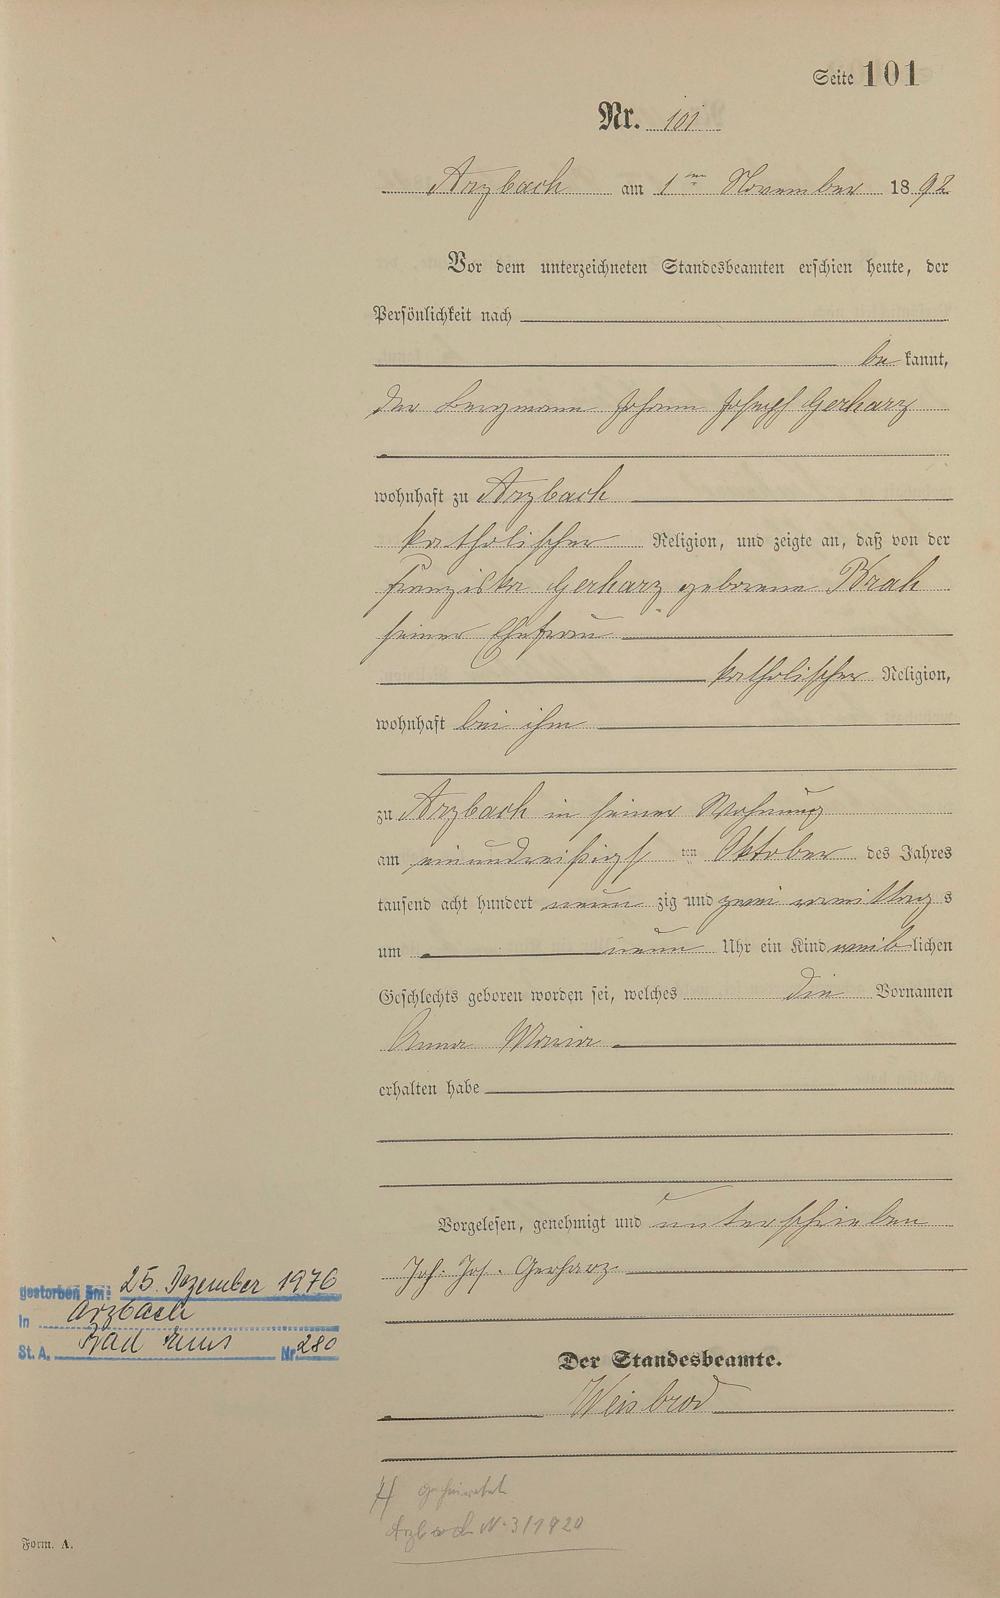 Seite 101
Nr. 101
Arzbach am 1ten November 1892
Vor dem unterzeichneten Standesbeamten erschien heute, der
Persönlichkeit nach
bekannt,
der Bergmann Johann Joseph Gerharz
wohnhaft zu Arzbach
katholischer Religion, und zeigte an, daß von der
Franziska Gerharz geborene Krah
seiner Ehefrau
katholischer Religion,
wohnhaft bei ihm
zu Arzbach in seiner Wohnung
am einunddreißigsten Oktober des Jahres
tausend acht hundert neunzig und zwei vormittags
um neun Uhr ein Kind weiblichen
Geschlechts geboren worden sei, welches die Vornamen
Anna Maria
erhalten habe
Vorgelesen, genehmigt und unterschrieben
Joh. Jos. Gerharz
gestorben am: 25. Dezember 1976
in Arzbach
St. A. Bad Ems Nr. 280
Der Standesbeamte.
Weisbrod
geheiratet
Arzbach N. 3/1920
Form. A.